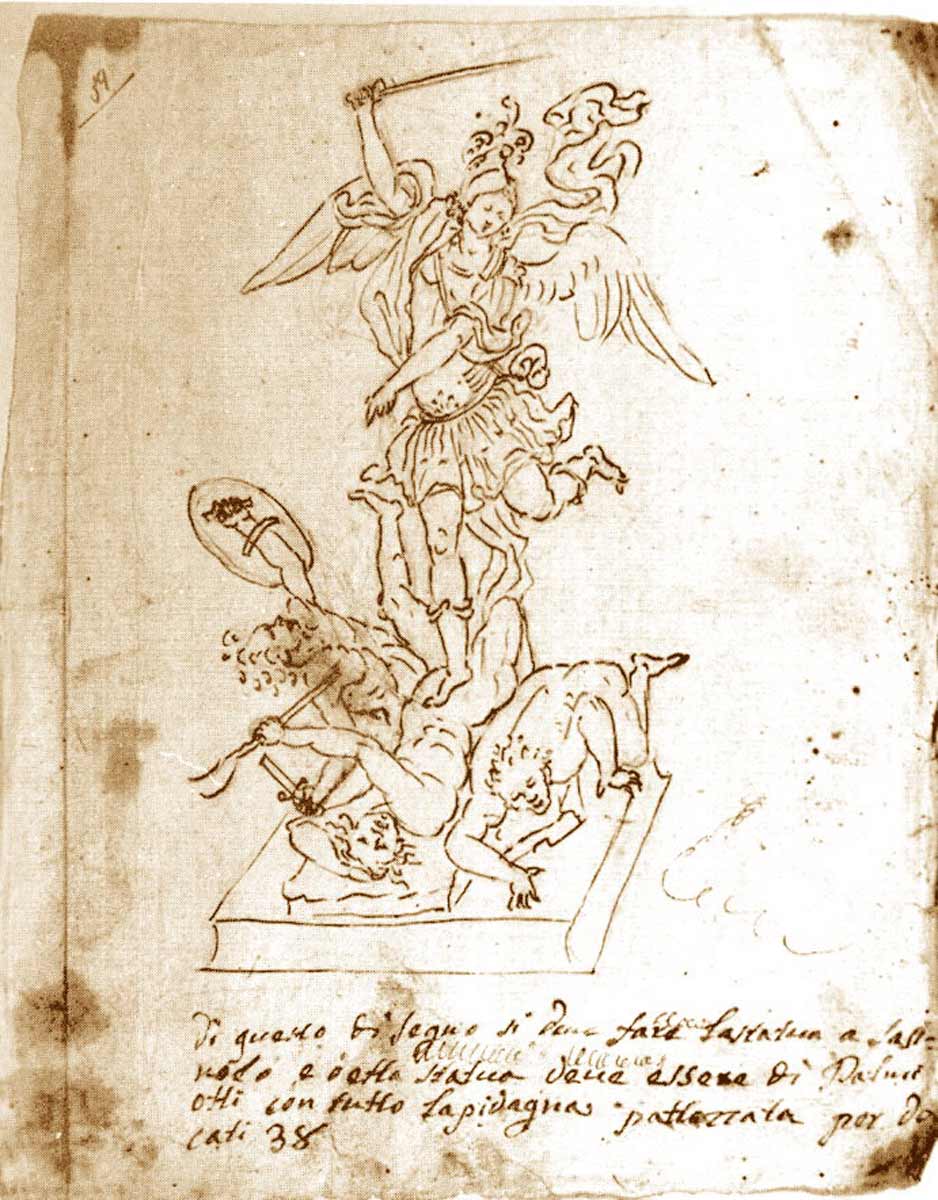 Di questo di segno si deve fare lastatua a
e detta statua deve essere di Palmi
otti con tutto lapidagna per du
cati 38